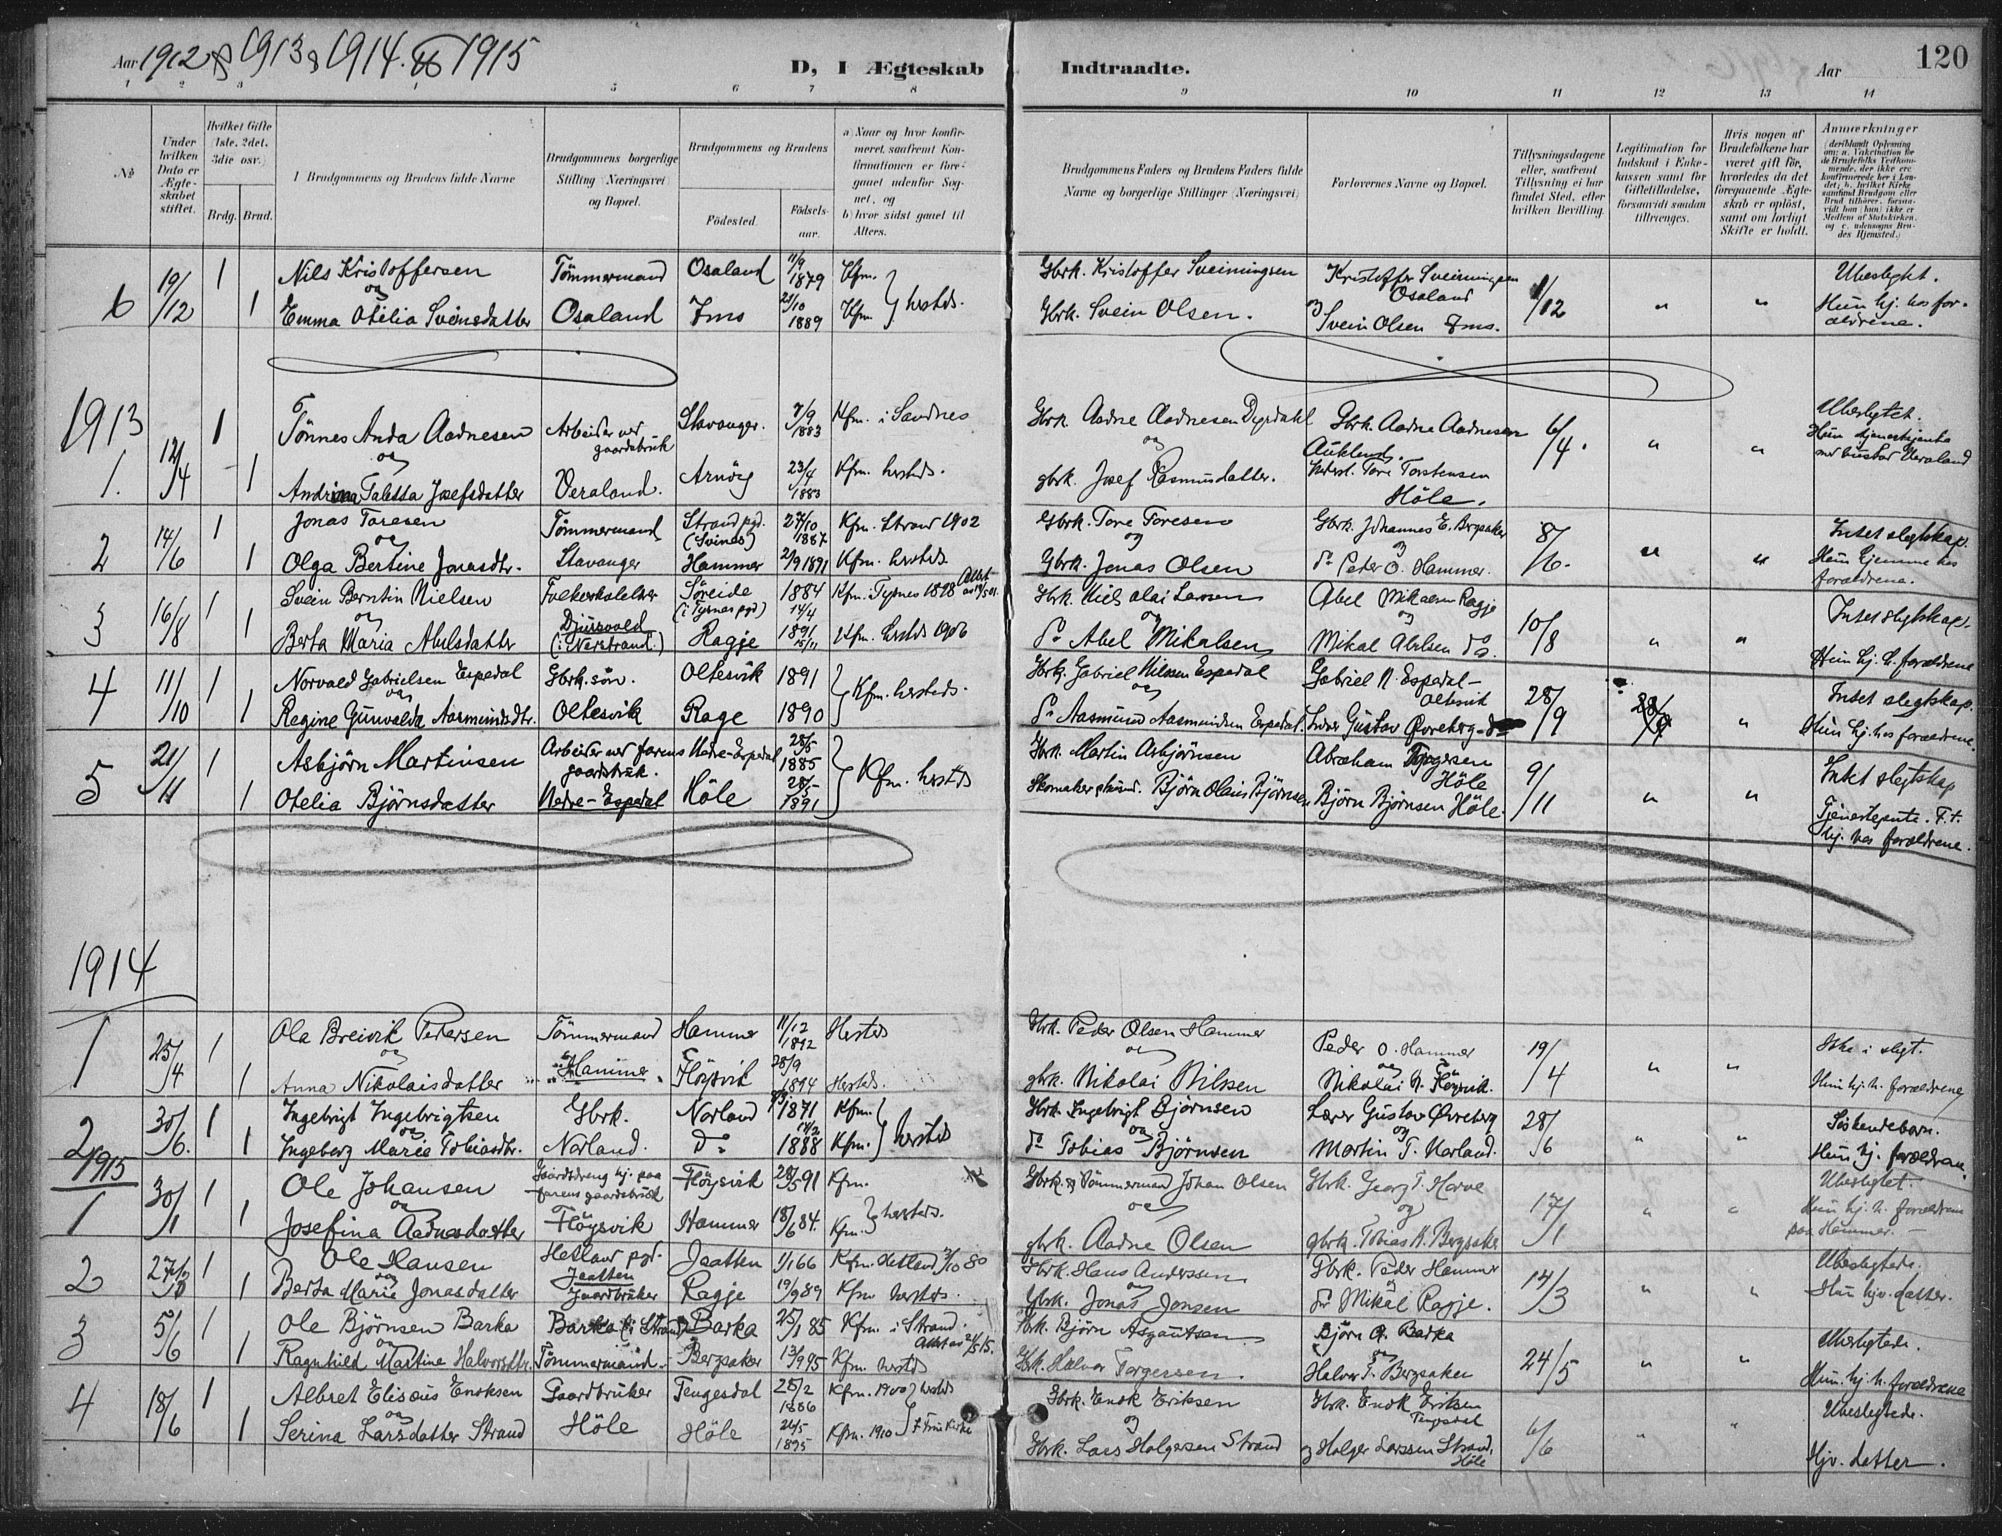 Aar 1912 & 1913 & 1914. & 1915
D, I Ægteskab Indtraadte.
Aar
120
1 2 3 4 5 6 7 8 9 10 11 12 13 14
№
Under hvilken Dato er Ægteskabet stiftet.
Hvilket Gifte (1ste, 2det, 3die osv.)
Brdg. Brud.
I Brudgommens og Brudens fulde Navne
Brudgommens borgerlige Stilling (Næringsvei) og Bopæl.
Brudgommens og Brudens
Fødested.
Fødselsaar.
a) Naar og hvor konfirmeret, saafremt Konfirmationen er foregaaet udenfor Sognet, og
b) hvor sidst gaaet til Alters.
Brudgommens Faders og Brudens Faders fulde Navne og borgerlige Stillinger (Næringsvei)
Forlovernes Navne og Bopæl.
Tillysningsdagene eller, saafremt Tillysning ei har fundet Sted, efter hvilken Bevilling.
Legitimation for Indskud i Enkekassen samt for Giftetilladelse, forsaavidt saadan tiltrænges.
Hvis nogen af Brudefolkene har været gift før, hvorledes da det foregaaende Ægteskab er opløst, samt om lovligt Skifte er holdt.
Anmerkninger
(deriblandt Oplysning om: a. Vakcination for de Brudefolks Vedkommende, der ikke ere konfirmerede her i Landet; b. hvilket Kirkesamfund Brudgom eller Brud tilhører, forsaavidt han (hun) ikke er Medlem af Statskirken, og c. udensogns Brudes Hjemsted.)
6 19/12 1 Nils Kristoffersen Tömmermand Osaland 11/9 1879 Kfm. Gbrk. Kristoffer Sveinungsen Kristoffer Sveinungsen Osaland 1/12 Ubeslegtet.
og
1 Emma Otelia Sveinsdatter Osaland Ims 23/10 1889 Kfm. } hersteds. Gbrk. Svein Olsen. og Svein Olsen Ims. " " Hun hj. hos forældrene.
1913
1. 12/4 1 Tönnes Anda Aadnesen Arbeider ved gaardsbruk Stavanger. 7/9 1883 Kfm. i Sandnes Gbrk. Aadne Aadnesen Gbrk. Aadne Aadnesen Auklend. 6/4. " " Ubeslegtet.
og
1 Taletta Josefsdatter Veraland. Arnöy 23/4 1883 Kfm. hersteds. gbrk. Josef Tore Torstensen Höle.
2 14/6 1 Jonas Toresen Tömmermand Strand pgd. (Svines) 27/10 1887 Kfm. Strand 1902 Gbrk. Tore Toresen Gbrk. Johannes E. Bergsaker 8/6. Intet slegtskap.
og
1 Olga Bertine Jonasdtr. Stavanger Hammer 2/9 1891 Kfm. hersteds Gbrk. Jonas Olsen og Do Peter O. Hammer. " " Hun hjemme hos forældrene.
3 16/8 1 Svein Berntin Nielsen Folkeskolelærer Söreide (i Tysnes pgd) 1884 14/4 Kfm. Tysnes 1898 Gbrk. Nicolai Larsen Abel Mikalsen Ragje 10/8 Intet slegtskap.
og
1 Berta Maria Abelsdatter (i Nerstrand.) Ragje 1891 15/11 Kfm. hersteds 1906 Do Abel Mikalsen og Mikal Abelsen do. " " Hun hj. h. forældrene
4 11/10 1 Norvald Gabrielsen Espedal Gbrk. sön. Oltesvik 1891 Gbrk. Gabriel Nilssen Espedal Gabriel N. Espedal – Oltesvik 28/9 28/9 Intet slegtskap.
og
1 Regine Gunvalda Aasmundsdtr. Oltesvik Rage 1890 } Kfm. hersteds. Do Aasmund Aasmundsen Espedal. Gustav Övreberg " Hun hj. hos forældrene.
5 21/11 1 Asbjörn Martinsen Arbeider ved farens gaardsbruk. Nedre-Espedal 28/5 1885 Gbrk. Martin Asbjörnsen Abraham Torgersen Höle 9/11 Intet slegtskap
1 Otelia Björnsdatter Nedre-Espedal Höle 28/5 1891 } Kfm. hersteds Björn Olaus Björnsen Björn Björnsen Höle. " " Tjenestepike. F.t. hj. hos forældrene.
1914
1 25/4 1 Ola Breivik Petersen Tömmermand Hammer 11/12 1892 Hersteds Gbrk. Peder Olsen Hammer Peder O. Hammer 19/4 " " Ikke i slegt.
og
1 Anna Nikolaisdatter Hammer Flöysvik 28/9 1894 Hersteds. gbrk. Nikolai Nilssen og Nikolai N. Flöysvik. Hun hj. h. forældrene
2 30/6. 1 Ingebrigt Ingebrigtsen Gbrk. Norland 1871 Kfm. Gbrk. Ingebrigt Björnsen Lærer Gustav Övreberg 28/6 " " Söskendebarn.
og
1 Ingeborg Marie Tobiasdtr. Norland. Do 14/2 1888 Kfm. } hersteds Do Tobias Björnsen og Martin T. Norland. Hun hj. forældrene.
1915
1 30/1 1 Ole Johansen Gaardsdreng hj. paa farens gaardsbruk Flöysvik 28/5 91 Kfm. Gbrk. og Tömmermand Johan Olsen Gbrk. Georg T. Horve 17/1 " " Ubeslegtet.
og
1 Josefina Aadnesdatter Flöysvik Hammer 18/6 84. Kfm. } hersteds. gbrk. Aadne Olsen og gbrk. Tobias K. Bergsaker Hun hj. h. forældrene paa Hammer.
2 27/3 1 Ole Hansen Hetland pgd. Jaatten Jaatten 1/1 66 Kfm. Hetland 3/10 80 Gbrk. Hans Anderssen Gbrk. Peder Hammer 14/3 " " Ubeslegtede.
og
1 Berta Marie Jonasdatter Gaardbruker Ragje 19/9 89 Kfm hersteds. Gbrk. Jonas Jonsen og Do Mikal Ragje. Hun hjv. datter.
3 5/6 1 Ole Björnsen Barka Barka (i Strand) Barka 25/1 85 Kfm. i Strand. Gbrk. Björn Asgautsen Björn A. Barka 24/5 " " Ubeslegtede.
og
1 Ragnhild Martine Halvorsdtr. Tömmermand Bergsaker 13/9 95 Kfm. hersteds Gbrk. Halvor Torgersen. og Halvor T. Bergsaker Hun. hj. h. forældrene
4 18/6 1 Albret Elisæus Enoksen Gaardbruker Tengesdal 25/2 1886 Kfm. 1900 hersteds Gbrk. Enok Eriksen Gbrk. Enok Eriksen Tengesdal 6/6 " " Ubeslegtede.
og
1 Serina Larsdatter Strand Höle Höle 26/5 1895 Kfm. 1910 } f. Frue Kirke Gbrk. Lars Holgersen Strand og Holger Larssen Strand, Höle Hjv. datter.